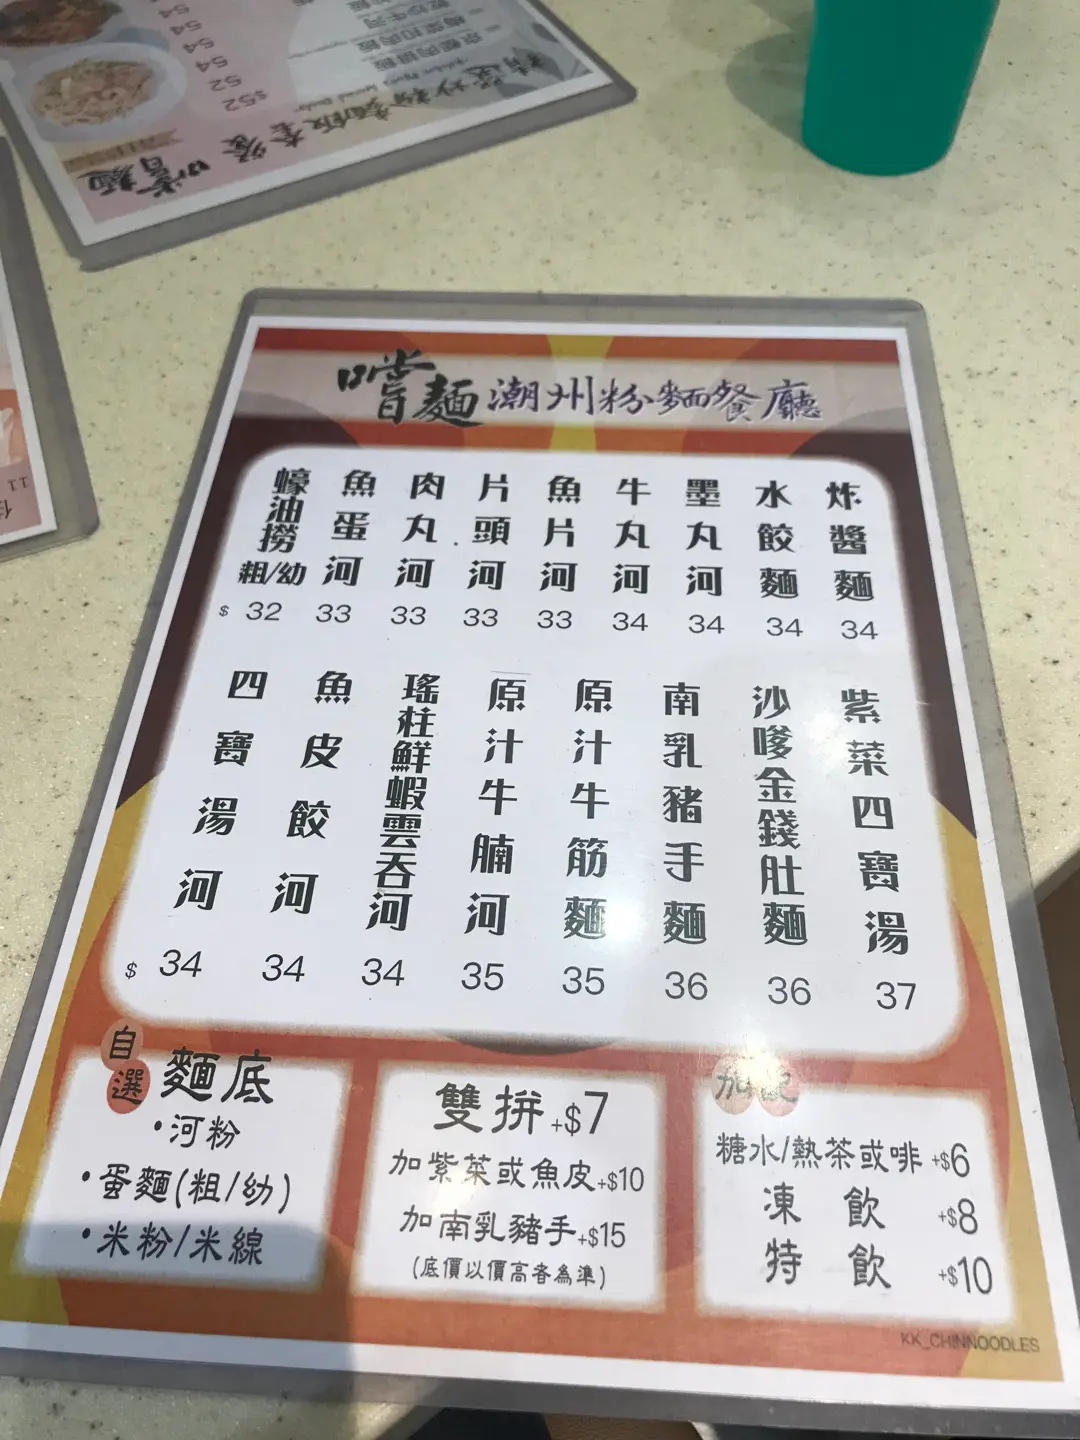 嚐麵 潮州粉麵餐廳
蠔油撈粗/幼 $32
魚蛋河 33
肉丸河 33
片頭河 33
魚片河 33
牛丸河 34
墨丸河 34
水餃麵 34
炸醬麵 34
四寶湯河 $34
魚皮餃河 34
瑤柱鮮蝦雲吞河 34
原汁牛腩河 35
原汁牛筋麵 35
南乳豬手麵 36
沙嗲金錢肚麵 36
紫菜四寶湯 37
自選 麵底
•河粉
•蛋麵(粗/幼)
•米粉/米線
雙拼+$7
加紫菜或魚皮+$10
加南乳豬手+$15
(底價以價高者為準)
加配
糖水/熱茶或啡 +$6
凍飲 +$8
特飲 +$10
KK_CHINNOODLES
嚐麵 精選炒粉麵飯套餐
$52
52
54
54
54